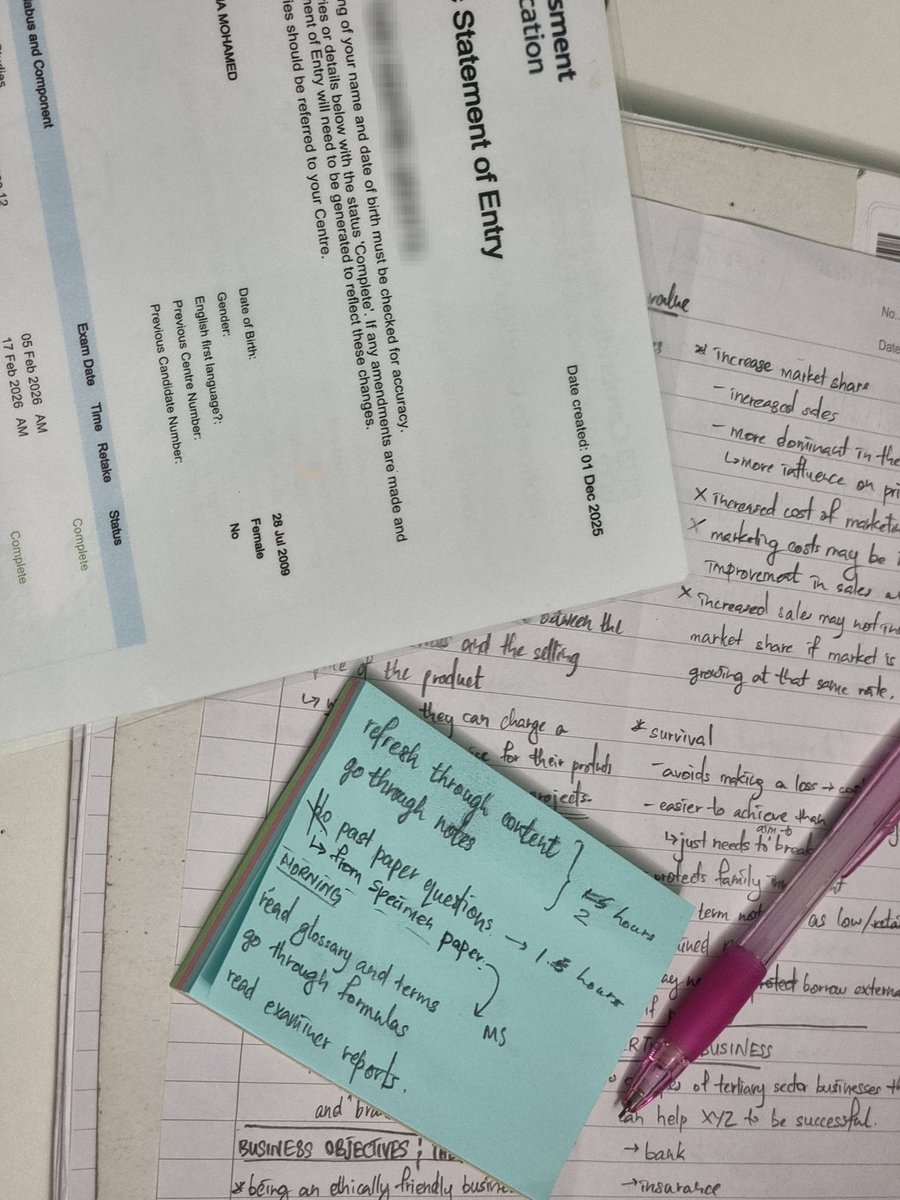 sment
cation
Statement of Entry
ng of your name and date of birth must be checked for accuracy.
ries or details below with the status 'Complete'. If any amendments are made and
ment of Entry will need to be generated to reflect these changes.
ies should be referred to your Centre.
Date created: 01 Dec 2025
MOHAMED
Date of Birth: 28 Jul 2009
Gender: Female
English first language?: No
Previous Centre Number:
Previous Candidate Number:
labus and Component Exam Date Time Retake Status
05 Feb 2026 AM Complete
17 Feb 2026 AM Complete
No.
Date
value
* increase market share
- increased sales
- more dominant in the
↳ more influence on pri
x increased cost of marketi
x marketing costs may be
improvement in sales
x increased sales may not in
market share if market is
growing at that same rate.
* survival
- avoids making a loss →
- easier to achieve than
↳ just needs to aim to break
rotects family
term not as low/
borrow externa
if
BUSINESS
of tertiary sector businesses
can help XYZ to be successful.
→ bank
→ insurance
between the
and the selling
of the product
they can charge a
for their products
projects.
and
BUSINESS OBJECTIVES
* being an ethically friendly
refresh through content
go through notes
2 hours
past paper questions → 1.5 hours
↳ from specimen paper.
MS
MORNING
read glossary and terms
go through formulas
read examiner reports.